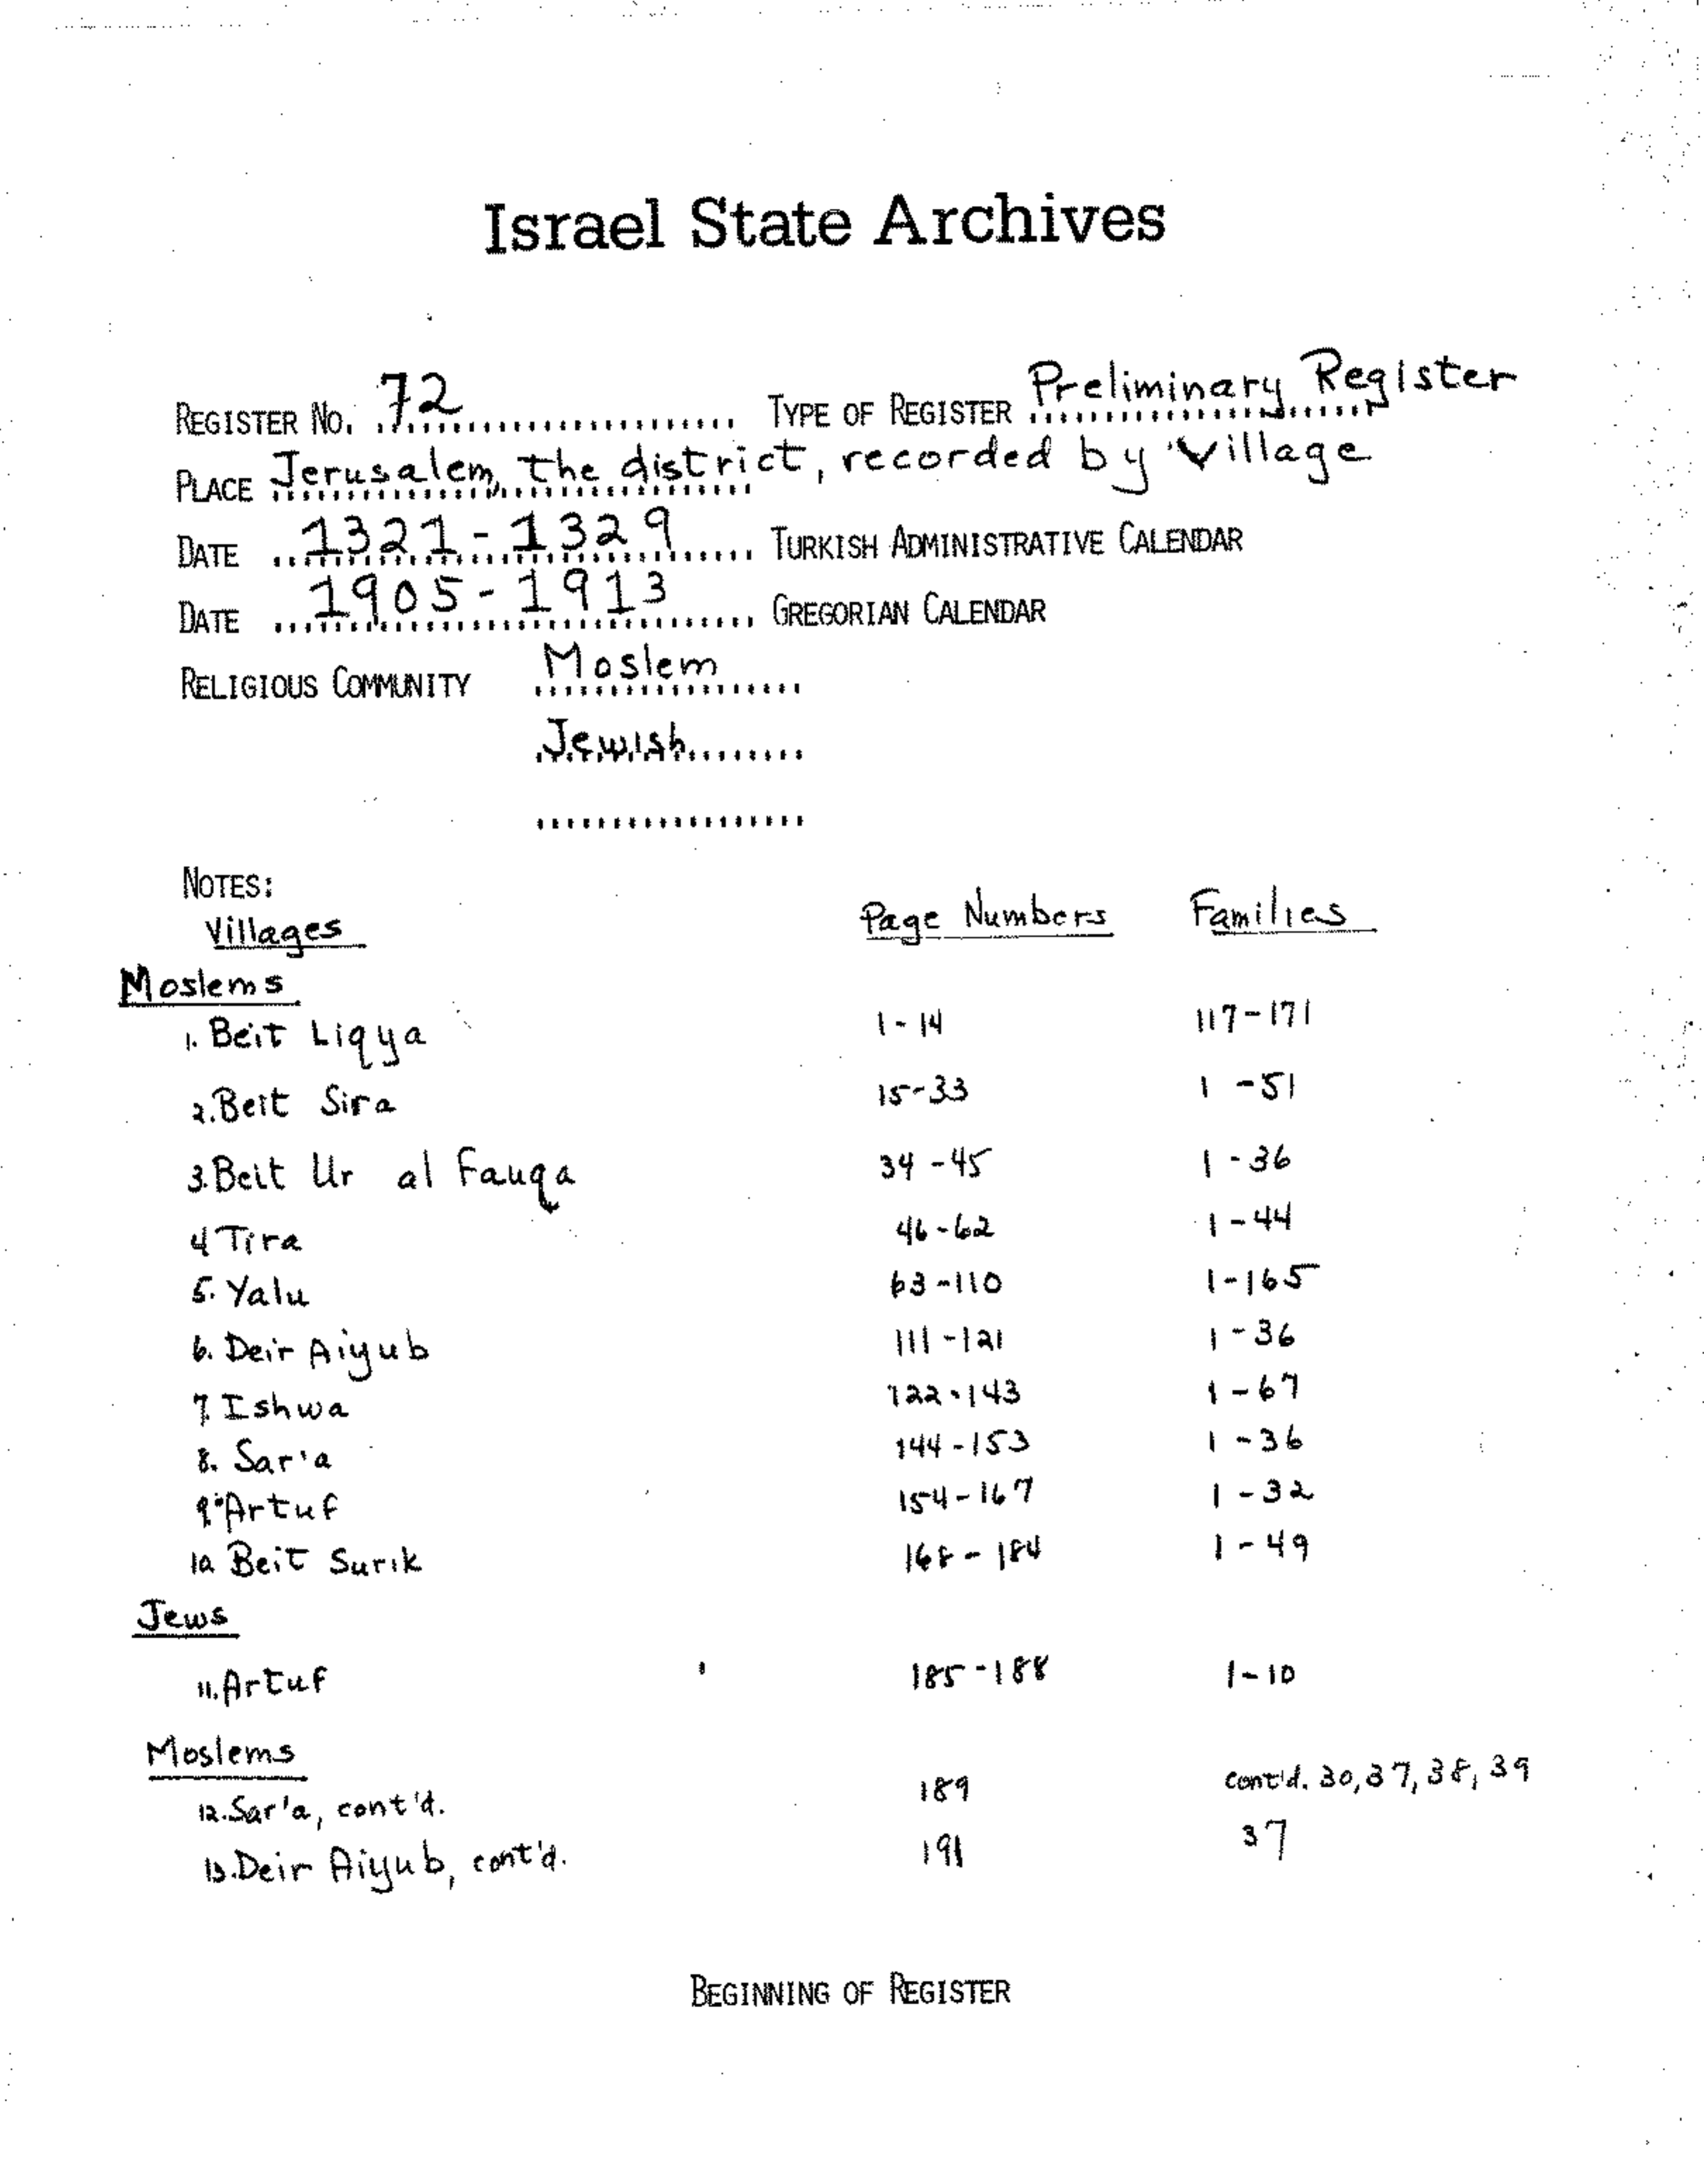 Israel State Archives
REGISTER NO. 72 TYPE OF REGISTER Preliminary Register
PLACE Jerusalem, the district, recorded by village
DATE 1321-1329 TURKISH ADMINISTRATIVE CALENDAR
DATE 1905-1913 GREGORIAN CALENDAR
RELIGIOUS COMMUNITY Moslem
Jewish
NOTES:
Villages Page Numbers Families
Moslems
1. Beit Liqya 1-14 117-171
2. Beit Sira 15-33 1-51
3. Beit Ur al Fauqa 34-45 1-36
4 Tira 46-62 1-44
5. Yalu 63-110 1-165
6. Deir Aiyub 111-121 1-36
7. Ishwa 122-143 1-67
8. Sar'a 144-153 1-36
9. Artuf 154-167 1-32
10. Beit Surik 168-184 1-49
Jews
11. Artuf 185-188 1-10
Moslems
12. Sar'a, cont'd. 189 cont'd. 30, 37, 38, 39
13. Deir Aiyub, cont'd. 191 37
BEGINNING OF REGISTER